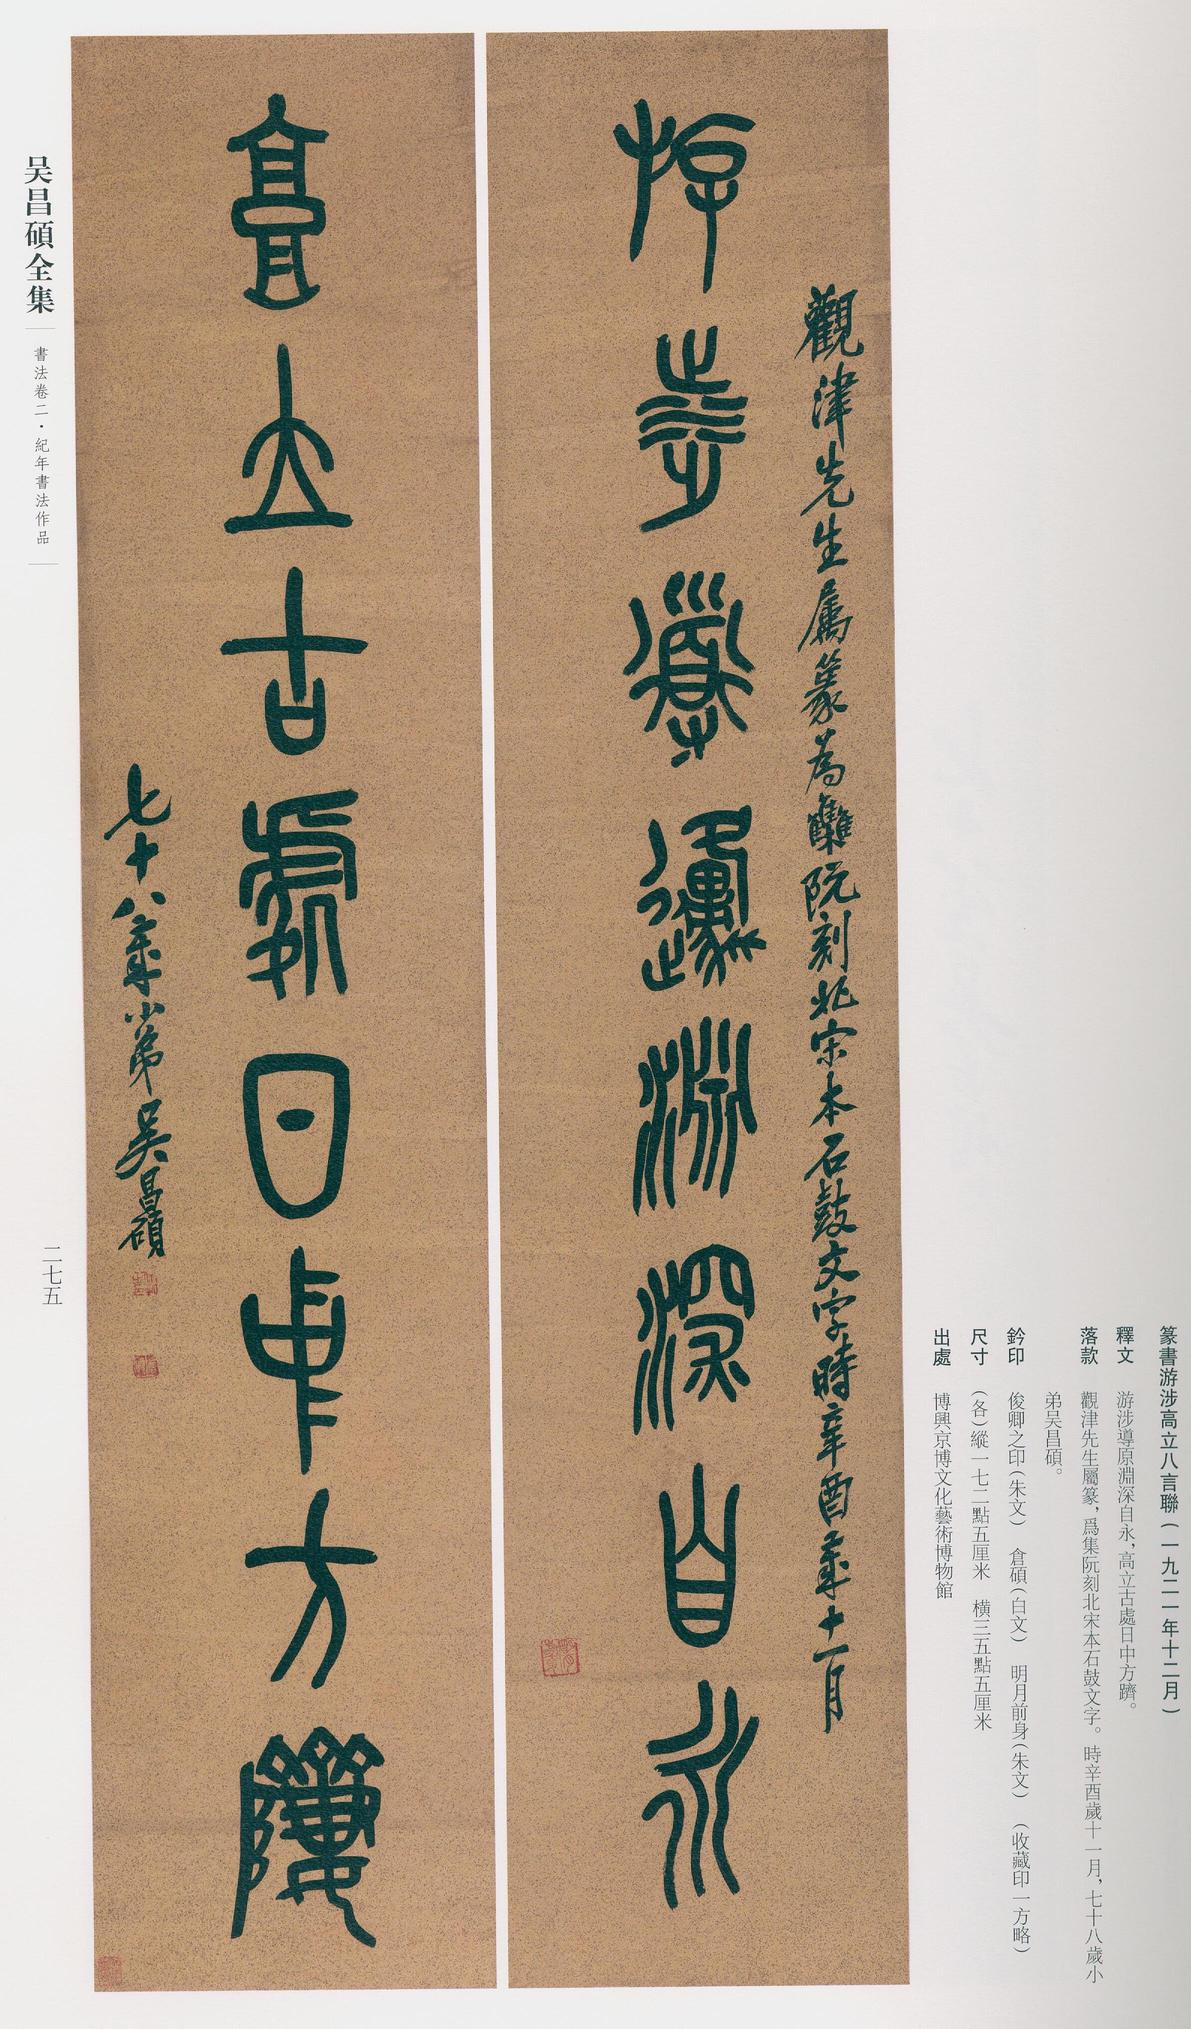 篆書游涉高立八言聯（一九二一年十二月）
釋文　游涉導原淵深自永，高立古處日中方躋。
落款　觀津先生屬篆，爲集阮刻北宋本石鼓文字。時辛酉歲十一月，七十八歲小
弟吴昌碩。
鈐印　俊卿之印（朱文）　倉碩（白文）　明月前身（朱文）　（收藏印一方略）
尺寸　（各）縱一七二點五厘米　橫三五點五厘米
出處　博興京博文化藝術博物館
觀津先生屬篆為集阮刻北宋本石鼓文字時辛酉歲十一月
游涉導原淵深自永
高立古處日中方躋
七十八歲小弟吴昌碩
吴昌碩全集
書法卷二·紀年書法作品
二七五